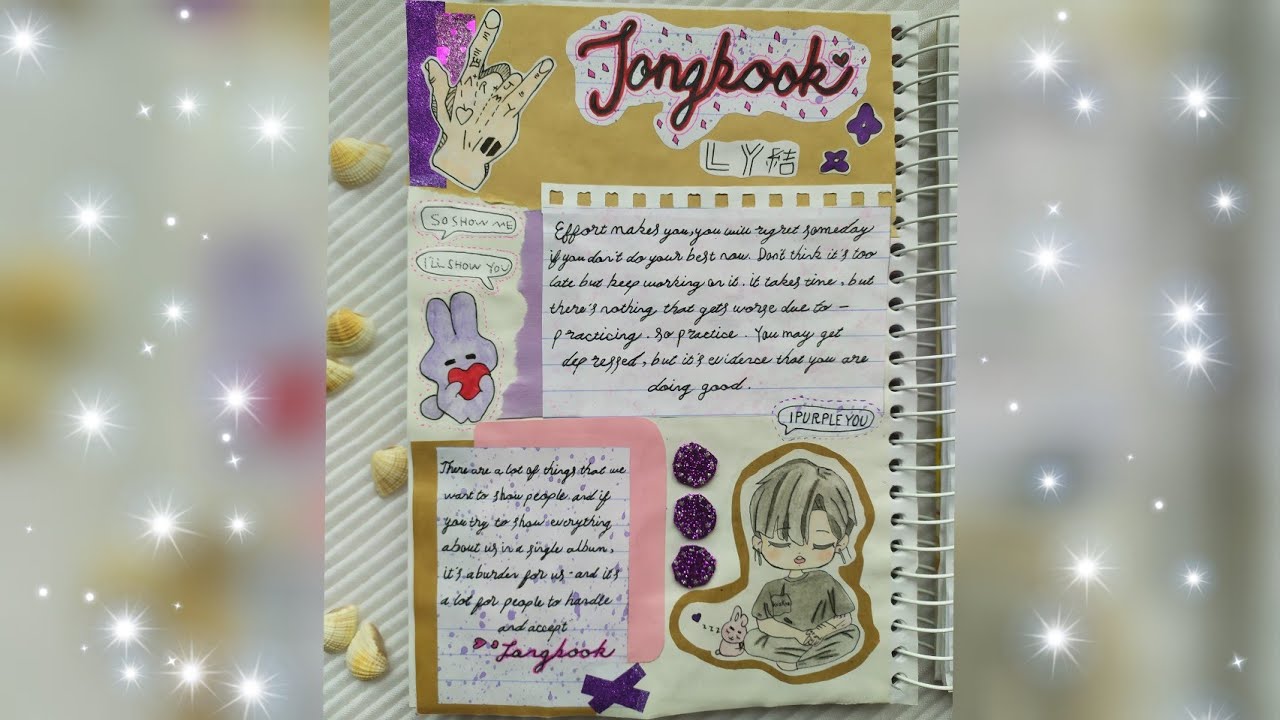 Jongkook
LY結
SO SHOW ME
I'LL SHOW YOU
Effort makes you, you will rigret someday
if you don't do your best now. Don't think it's too
late but keep working on it. it takes time, but
there's nothing that gets worse due to –
practicing. So practice. You may get
depressed, but it's evidence that you are
doing good.
I PURPLE YOU
There are a lot of things that we
want to show people and if
you try to show everything
about us in a single album,
it's a burden for us - and it's
a lot for people to handle
and accept
Jangkook
zzz